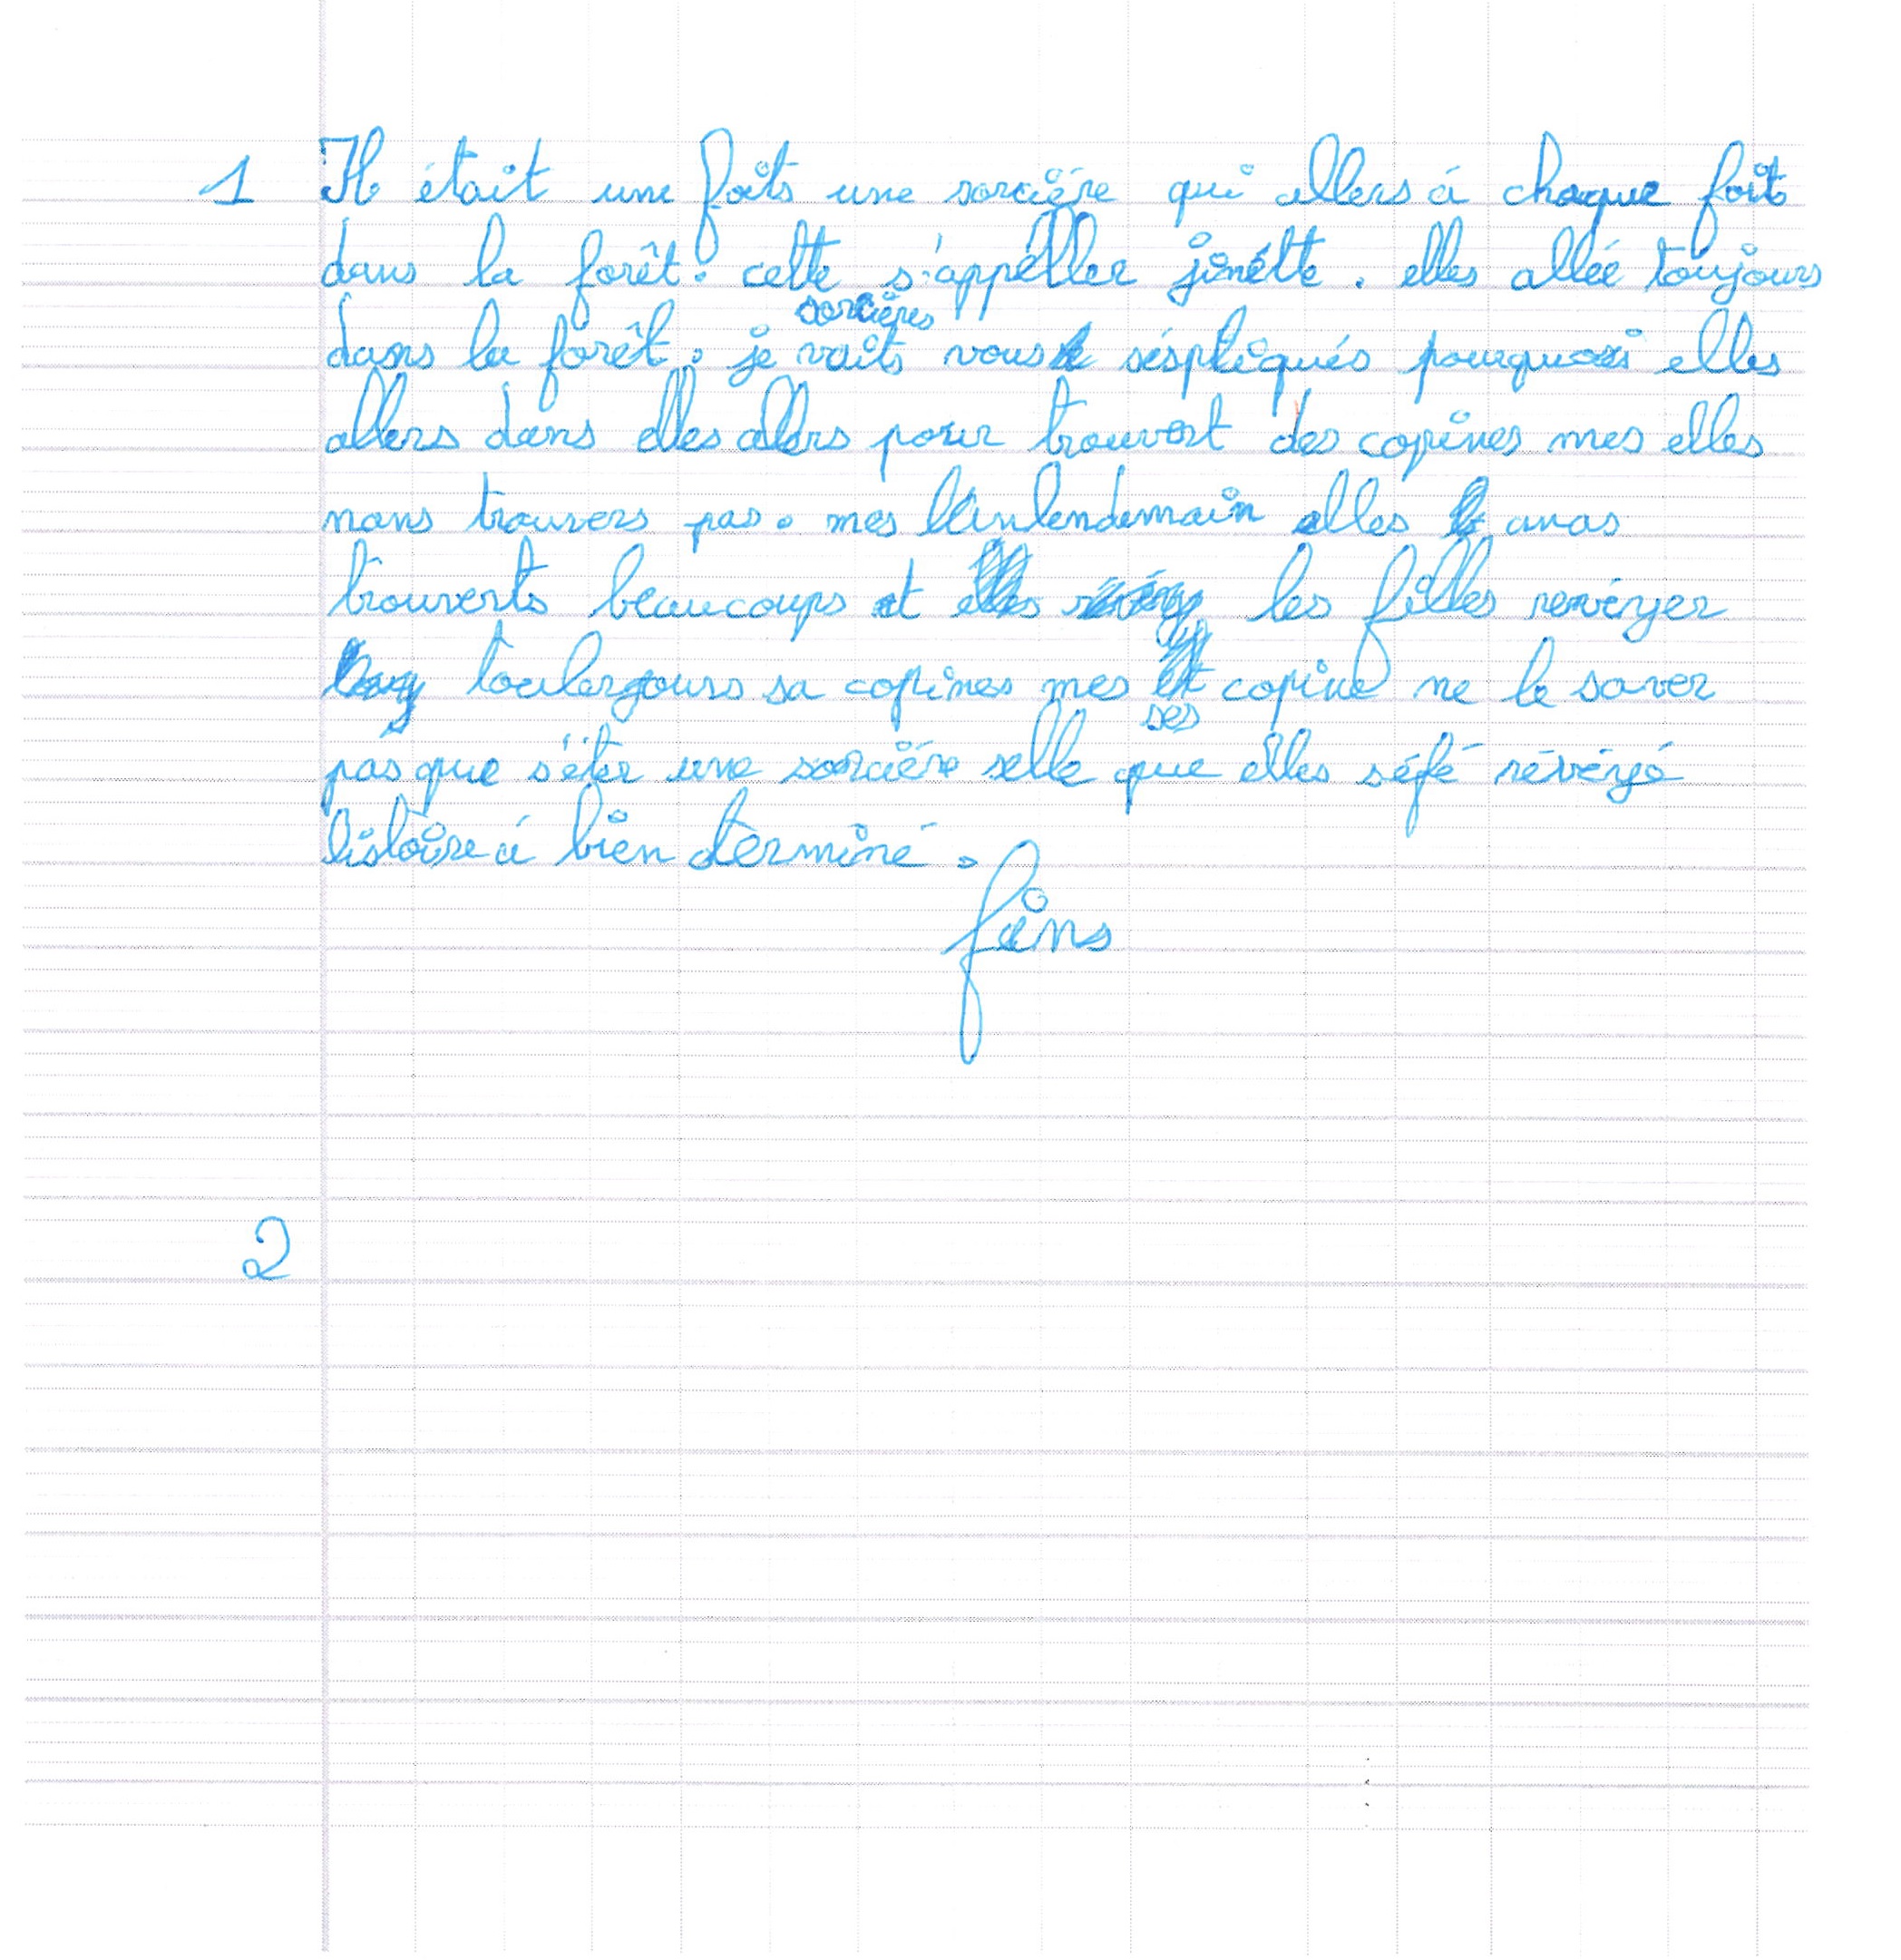 1 Il était une foits une sorcière qui allers à chaque foit
dans la forêt. cette s'appéller jinétte. elles allée toujours
sorcières
dans la forêt. je vaits vous séspliqués pourquoi elles
allers dans elles allers pour trouvert des copines mes elles
nons trouvers pas. mes l'inlendemain elles avas
trouverts beaucoups et les filles revéyer
toulergours sa copines mes copine ne le saver
ses
pas que s'éter une sorcière selle que elles séfé révéyé
listoire à bien terminé.
fins
2